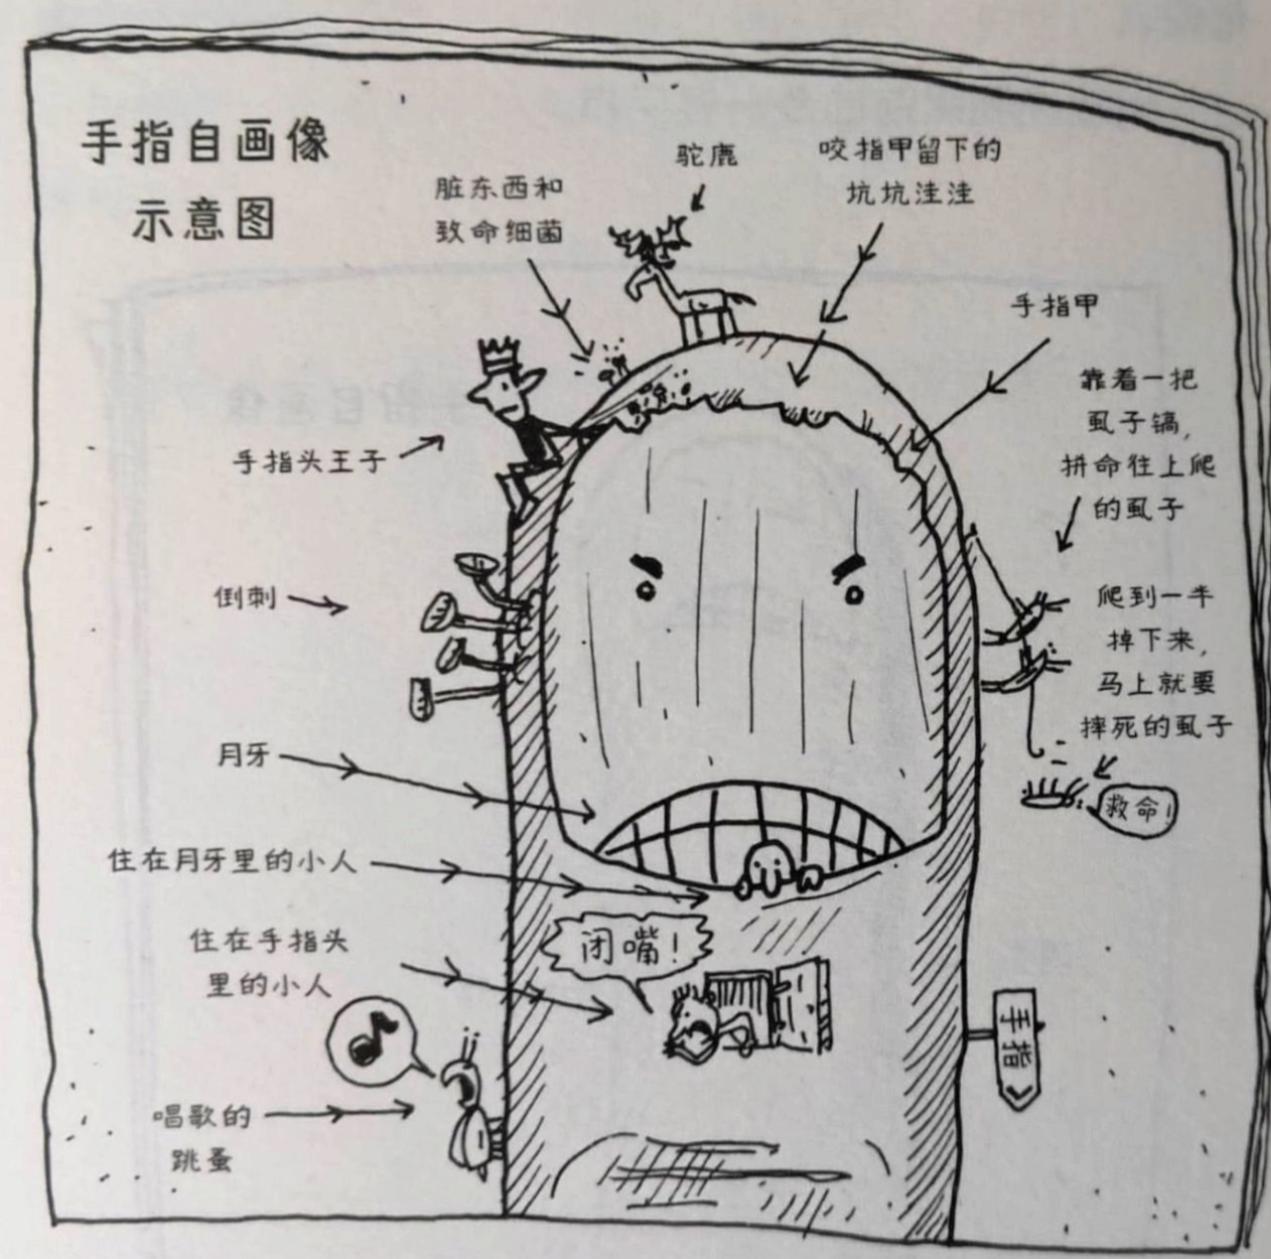 手指自画像
示意图
脏东西和
致命细菌
驼鹿
咬指甲留下的
坑坑洼洼
手指甲
靠着一把
虱子镐，
拼命往上爬
的虱子
手指头王子
倒刺
爬到一半
掉下来，
马上就要
摔死的虱子
救命！
月牙
住在月牙里的小人
住在手指头
里的小人
闭嘴！
手指
唱歌的
跳蚤